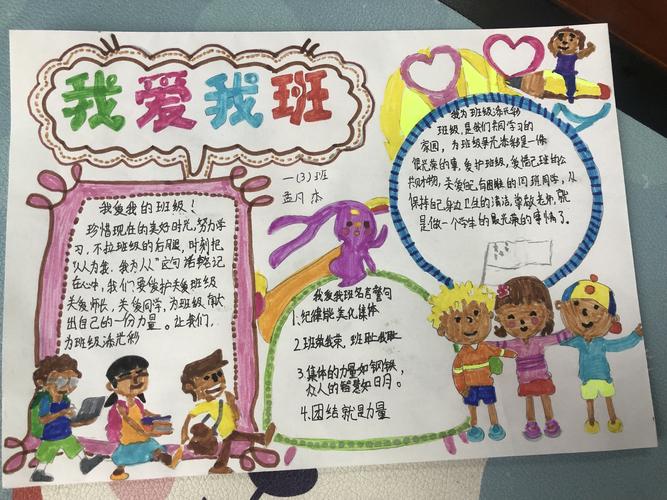 我爱我班
一(3)班
我爱我的班级!
珍惜现在的美好时光,努力学
习,不拉班级的后腿,时刻把
"人人为我,我为人人"这句话牢记
在心中,我们要爱护关爱班级
关爱师长,关爱同学,为班级献
出自己的一份力量。让我们,
为班级添光彩
我为班级添光彩
班级,是我们共同学习的
家园,为班级争光添彩是一件
很光荣的事,爱护班级,爱惜班的公
共财物,关爱有困难的同班同学,从
保持自己身边卫生的清洁,尊敬老师,就
是做一个学生的最光荣的事情了。
我爱我班名言警句
1.纪律能美化集体
2.班荣我荣,班耻我耻
3.集体的力量如钢铁,
众人的智慧如日月。
4.团结就是力量